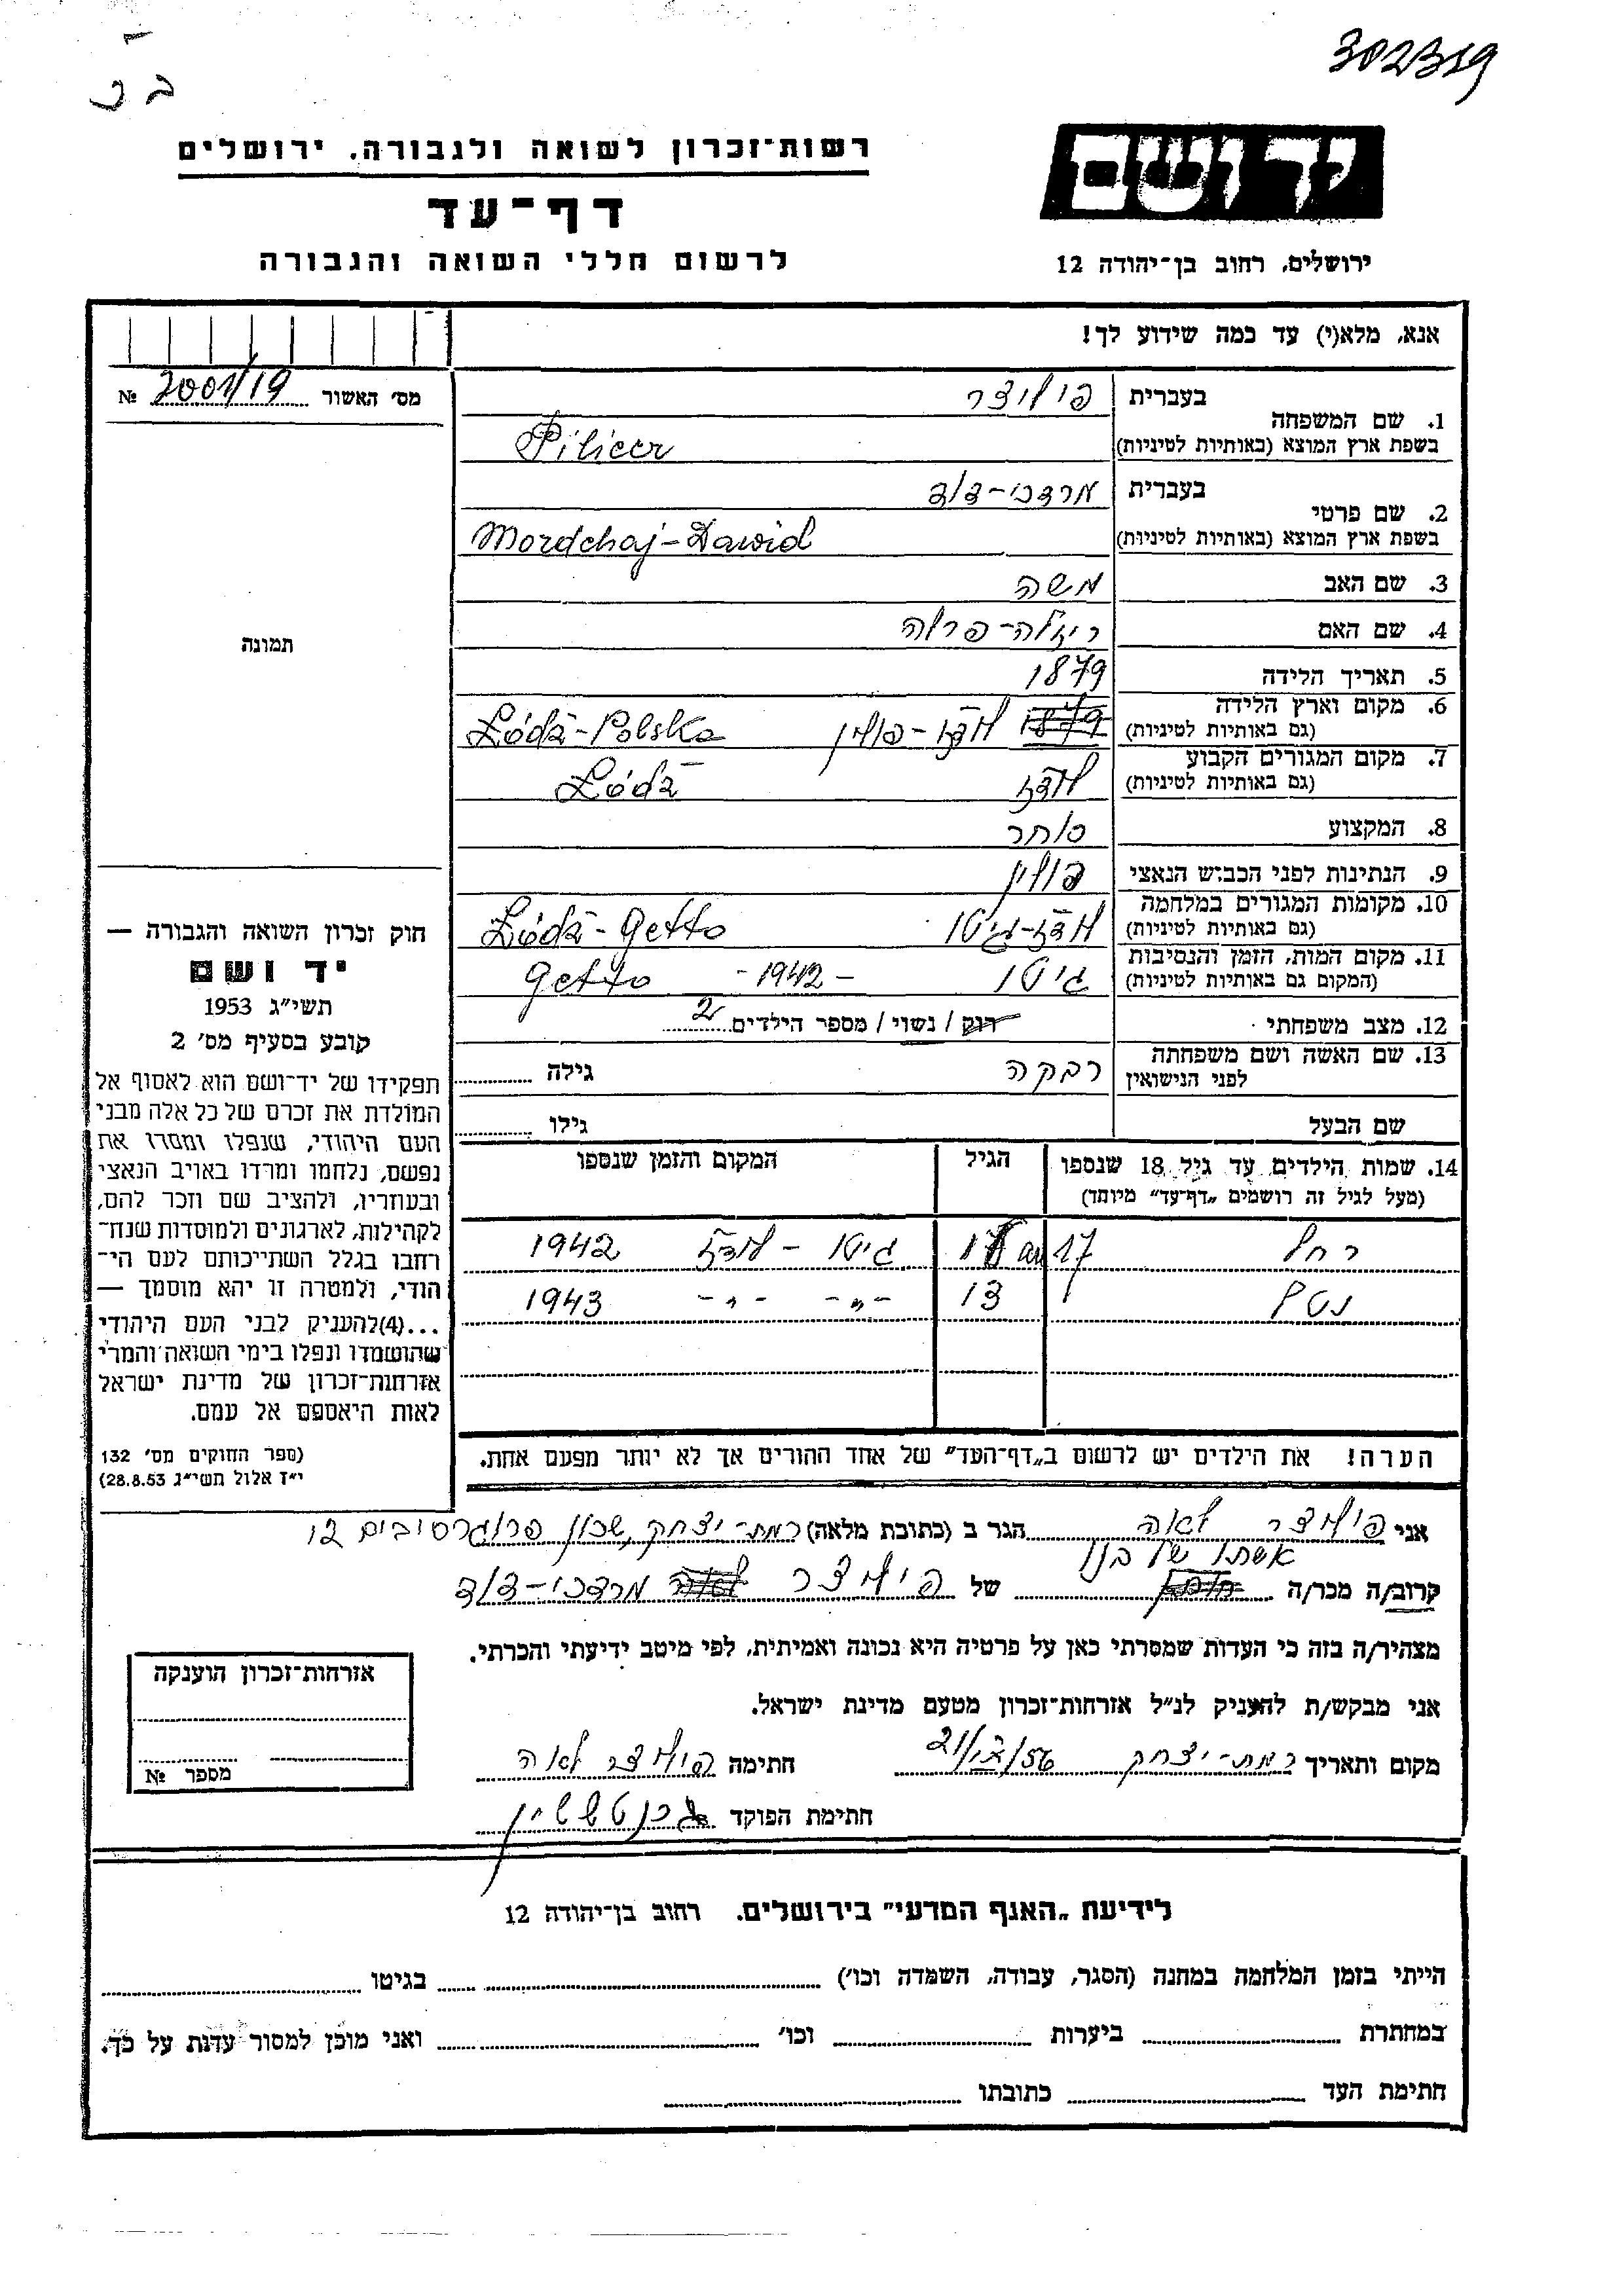 302319
רשות־זכרון לשואה ולגבורה. ירושלים
יד ושם
דף־עד
לרשום חללי השואה והגבורה
ירושלים, רחוב בן־יהודה 12
אנא, מלא(י) עד כמה שידוע לך!
מס׳ האשור 2001/19 №
1. שם המשפחה
בעברית פיליצר
בשפת ארץ המוצא (באותיות לטיניות) Pilicer
2. שם פרטי
בעברית מרדכי-דוד
בשפת ארץ המוצא (באותיות לטיניות) Mordchaj-Dawid
3. שם האב משה
4. שם האם ריזלה-פרלה
5. תאריך הלידה 1879
6. מקום וארץ הלידה
(גם באותיות לטיניות) 1879 לודז-פולין Łódź-Polska
7. מקום המגורים הקבוע
(גם באותיות לטיניות) לודז Łódź
8. המקצוע סוחר
9. הנתינות לפני הכבוש הנאצי פולין
10. מקומות המגורים במלחמה
(גם באותיות לטיניות) לודז-גיטו Łódź-Getto
11. מקום המות, הזמן והנסיבות
(המקום גם באותיות לטיניות) גיטו -1942- Getto
12. מצב משפחתי רוק / נשוי / מספר הילדים 2
13. שם האשה ושם משפחתה
לפני הנישואין רבקה גילה
שם הבעל גילו
14. שמות הילדים עד גיל 18 שנספו
(מעל לגיל זה רושמים „דף־עד״ מיוחד)
הגיל
המקום והזמן שנספו
רחל 17 גיטו - לודז 1942
13 -״- -״- 1943
הערה! את הילדים יש לרשום ב„דף־העד״ של אחד ההורים אך לא יותר מפעם אחת.
תמונה
חוק זכרון השואה והגבורה —
יד ושם
תשי״ג 1953
קובע בסעיף מס׳ 2
תפקידו של יד־ושם הוא לאסוף אל
המולדת את זכרם של כל אלה מבני
העם היהודי, שנפלו ומסרו את
נפשם, נלחמו ומרדו באויב הנאצי
ובעוזריו, ולהציב שם וזכר להם,
לקהילות, לארגונים ולמוסדות שנח־
רחבו בגלל השתייכותם לעם הי־
הודי, ולמטרה זו יהא מוסמך —
...(4)להעניק לבני העם היהודי
שהושמדו ונפלו בימי השואה והמרי
אזרחות־זכרון של מדינת ישראל
לאות היאספם אל עמם.
(ספר החוקים מס׳ 132
י״ז אלול תשי״ג 28.8.53)
אני פיליצר לאה הגר ב (כתובת מלאה) רמת-יצחק, שכון פרוגרסיבים 12
אשתו של בנו
קרוב/ה מכר/ה של פיליצר מרדכי-דוד
מצהיר/ה בזה כי העדות שמסרתי כאן על פרטיה היא נכונה ואמיתית, לפי מיטב ידיעתי והכרתי.
אני מבקש/ת להעניק לנ״ל אזרחות־זכרון מטעם מדינת ישראל.
מקום ותאריך רמת-יצחק חתימה פיליצר לאה
חתימת הפוקד
אזרחות־זכרון הוענקה
מספר №
לידיעת „האגף המדעי״ בירושלים. רחוב בן־יהודה 12
הייתי בזמן המלחמה במחנה (הסגר, עבודה, השמדה וכו׳) בגיטו
במחתרת ביערות וכו׳ ואני מוכן למסור עדות על כך.
חתימת העד כתובתו